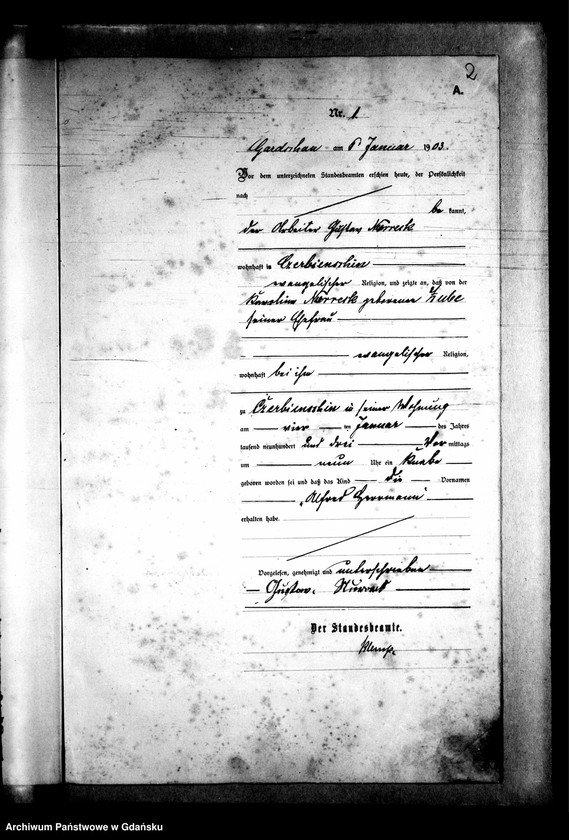 2
A.
Nr. 1
Gardschau am 6 Januar 1903.
Vor dem unterzeichneten Standesbeamten erschien heute, der Persönlichkeit
nach
be kannt,
der Arbeiter Gustav
wohnhaft in Czerbienschin
evangelischer Religion, und zeigte an, daß von der
geborene
seiner Ehefrau
evangelischer Religion,
wohnhaft bei ihm
zu Czerbienschin in seiner Wohnung
am vier ten Januar des Jahres
tausend neunhundert und drei Vor mittags
um neun Uhr ein Knabe
geboren worden sei und daß das Kind die Vornamen
„Alfred Herrmann"
erhalten habe.
Vorgelesen, genehmigt und unterschrieben
Gustav
Der Standesbeamte.
Archiwum Państwowe w Gdańsku